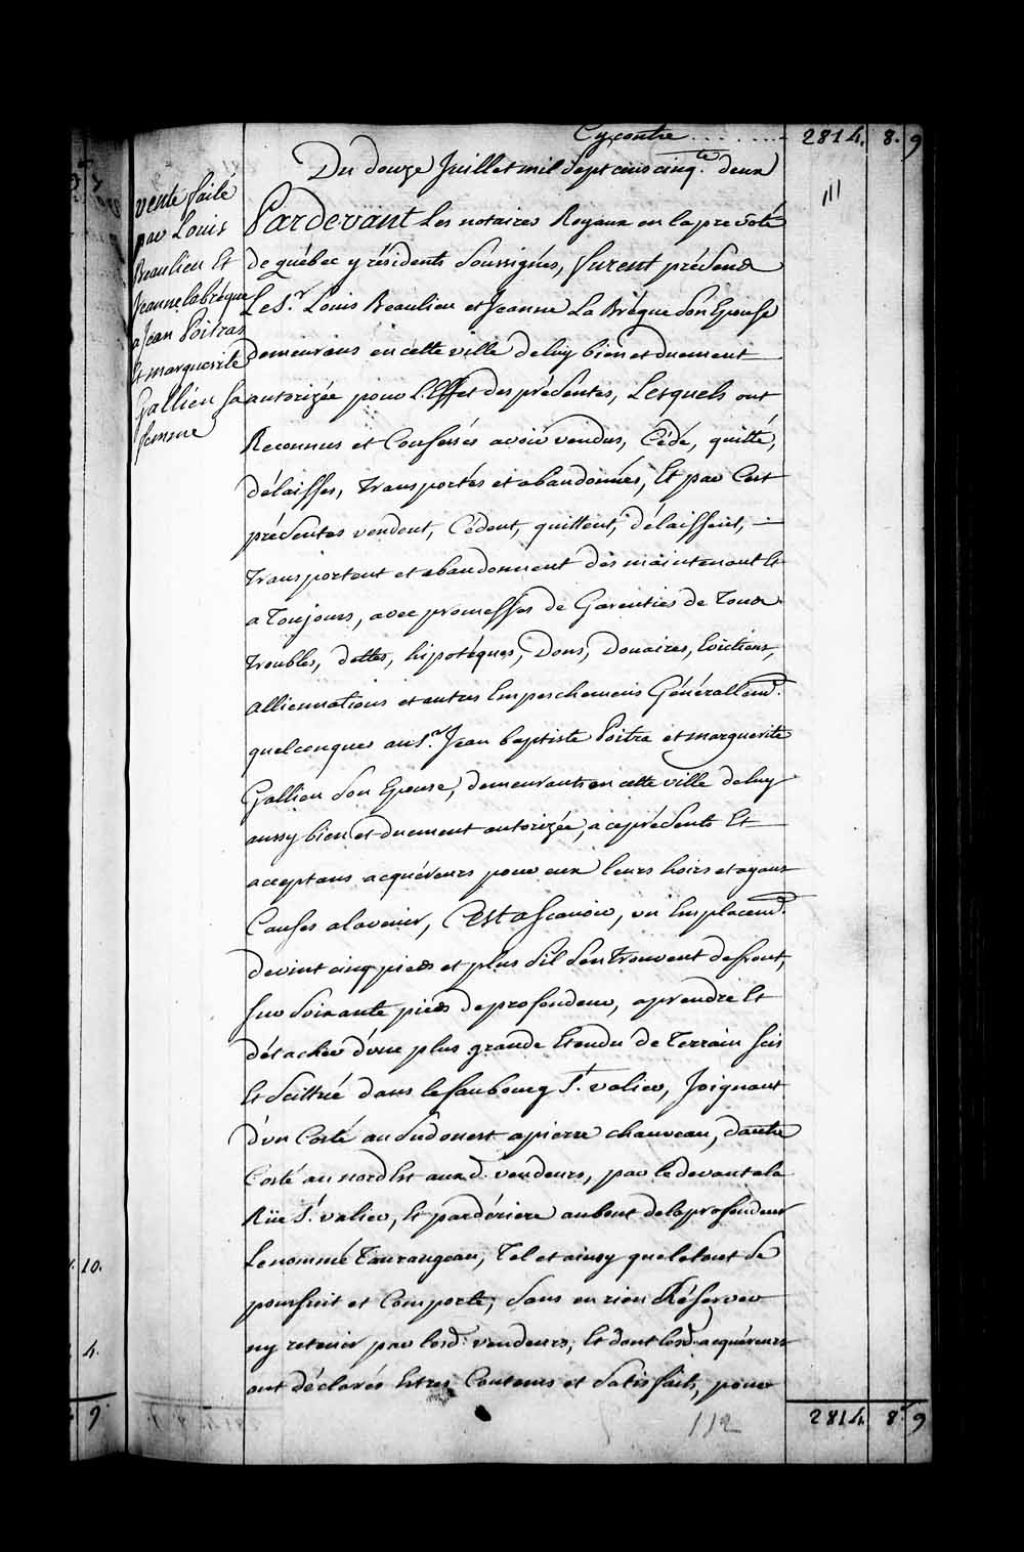 Cy contre . . . . . . . 2814. 8. 9
Du douze Juillet mil Sept cens cinq.te deux
vente faite
par Louis
Beaulieu Et
Jeanne labrèque
a Jean Poitras
Et marguerite
Gallien sa
femme
Pardevant Les notaires Royaux en la prevôté
de québec y résidents Soussignés, furent présens
Le S.r Louis Beaulieu et Jeanne La Brèque Son Epouse
demeurans en cette ville de luy bien et duement
autorizée pour L'Effet des présentes, Lesquels ont
Reconnus et Confessés avoir vendus, Cédé, quitté,
délaisses, transportés et abandonnés, Et par Cest
présentes vendent, Cédent, quittent, délaissent,
Transportent et abandonnent dès maintenant Et
a Toujours, avec promesses de Garenties de Tous
Troubles, dettes, hipotéques, Dons, Douaires, Evictions,
alliennations et autres Empeschemens Générallem.t
quelconques au S.r Jean baptiste Poitra et marguerite
Gallien Son Epouse, demeurants en cette ville de luy
aussy bien et duement autorizée, a ce présents Et
acceptans acquéreurs pour eux leurs hoirs et ayans
Causes alavenir, C'Est a Scavoir, un Emplacem.t
de vint cinq pieds et plus s'il s'en Trouvent de front,
sur Soixante pieds de profondeur, a prendre Et
détacher d'une plus grande Etendu de Terrain Sis
Et Scittué dans le faubourg S.t valier, Joignant
d'un Costé au Sudouest a pierre chauveau, dautre
Costé au nord Est aux d. vendeurs, par le devant ala
Rüe S.t valier, Et par dériere au bout de la profondeur
Le nommé Tourangeau, Tel et ainsy que le tout Se
poursuit et Comporte, Sans en rien Réserver
ny retenir par lesd. vendeurs, Et dont lesd. acquéreurs
ont déclarés Estres Contens et Satisfaits, pour
10.
4.
9
112
2814. 8. 9